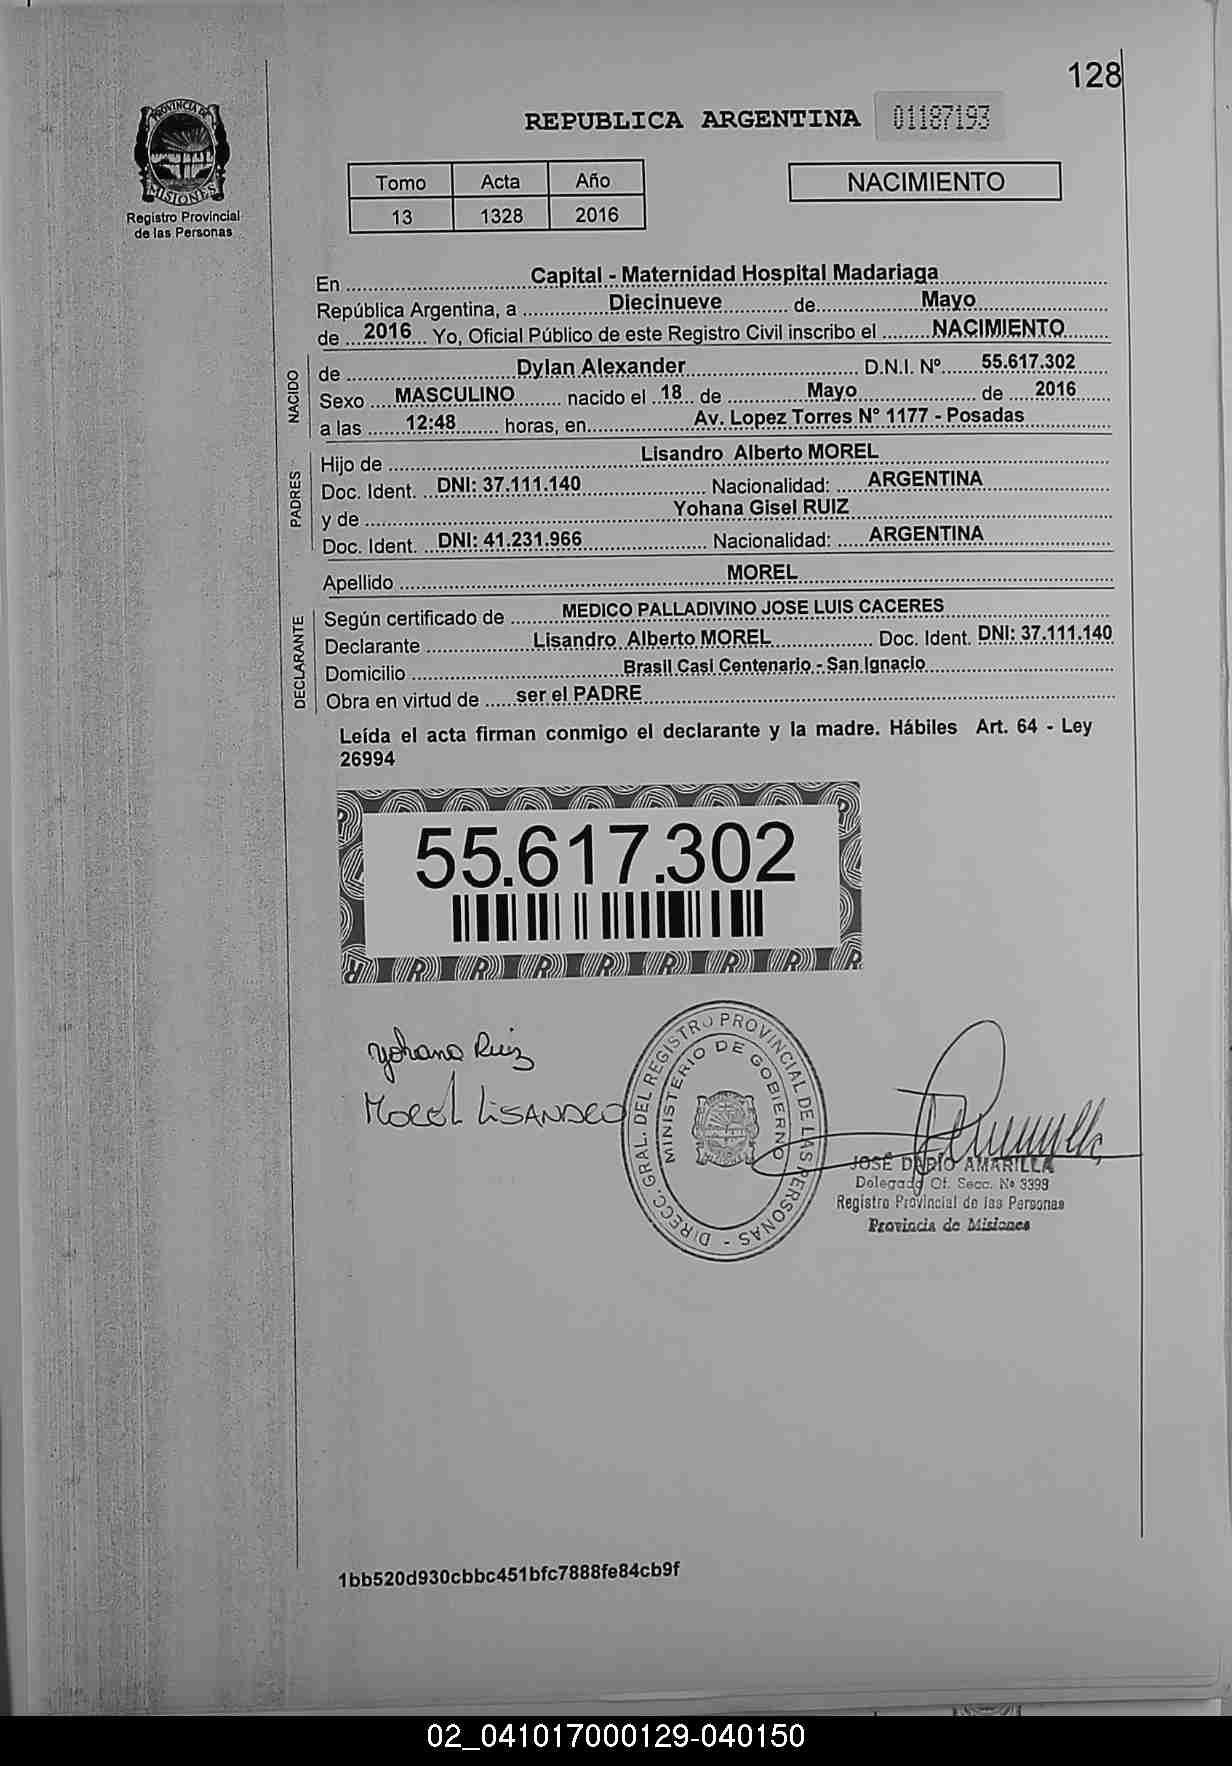 128
REPUBLICA ARGENTINA 01187193
PROVINCIA DE
MISIONES
Registro Provincial
de las Personas
Tomo Acta Año
13 1328 2016
NACIMIENTO
En Capital - Maternidad Hospital Madariaga
República Argentina, a Diecinueve de Mayo
de 2016 Yo, Oficial Público de este Registro Civil inscribo el NACIMIENTO
NACIDO
de Dylan Alexander D.N.I. Nº 55.617.302
Sexo MASCULINO nacido el 18 de Mayo de 2016
a las 12:48 horas, en Av. Lopez Torres N° 1177 - Posadas
PADRES
Hijo de Lisandro Alberto MOREL
Doc. Ident. DNI: 37.111.140 Nacionalidad: ARGENTINA
y de Yohana Gisel RUIZ
Doc. Ident. DNI: 41.231.966 Nacionalidad: ARGENTINA
Apellido MOREL
DECLARANTE
Según certificado de MEDICO PALLADIVINO JOSE LUIS CACERES
Declarante Lisandro Alberto MOREL Doc. Ident. DNI: 37.111.140
Domicilio Brasil Casi Centenario - San Ignacio
Obra en virtud de ser el PADRE
Leída el acta firman conmigo el declarante y la madre. Hábiles Art. 64 - Ley
26994
55.617.302
Yohana Ruiz
MOREL LISANDRO
DIRECC. GRAL. DEL REGISTRO PROVINCIAL DE LAS PERSONAS -
MINISTERIO DE GOBIERNO
JOSÉ DARÍO AMARILLA
Delegado Of. Secc. Nº 3399
Registro Provincial de las Personas
Provincia de Misiones
1bb520d930cbbc451bfc7888fe84cb9f
02_041017000129-040150